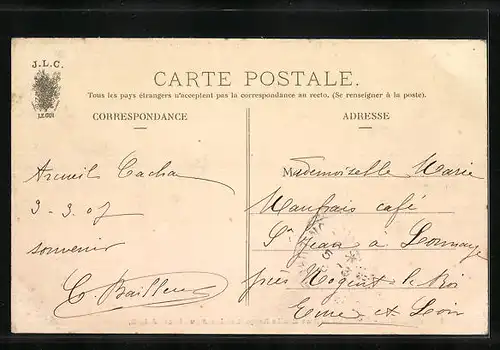 J.L.C.
LE GUI
CARTE POSTALE.
Tous les pays étrangers n'acceptent pas la correspondance au recto. (Se renseigner à la poste).
CORRESPONDANCE
ADRESSE
Arcueil Cachan
3-3.07
souvenir
Mademoiselle Marie
Maufrais café
St Jean a
près Nogent le Roi
Eure et Loir